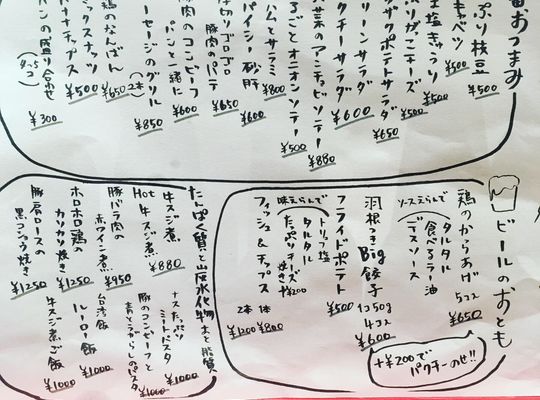 番おつまみ
ぷり枝豆
¥500
キャベツ
¥500
塩きゅうり
¥500
チーズ
¥500
ザクポテトサラダ
¥650
クチーサラダ
¥600
菜のアンチョビソテー
¥880
るごとオニオンソテー
¥500
ハムとサラミ
¥800
パイシー砂肝
¥600
ゴロゴロ
豚肉のパテ
¥650
豚肉のコンビーフ
パンと一緒に
¥600
セージのグリル
(2本)
¥850
鶏のなんばん
¥650
ックスナッツ
ナナチップス
¥500
パンの盛り合わせ
¥300
ビールのおとも
鶏のからあげ
5コ入
¥650
ソースえらんで
タルタル
食べるラー油
デスソース
羽根つき
Big餃子
1コ50g
4コ入
¥600
フライドポテト
¥500
味えらんで
トリュフ塩
タルタル
たっぷりチーズ焼き
+¥200
フィッシュ&チップス
1本
¥800
2本
¥1200
+¥200で
パクチーのせ!!
たんぱく質と炭水化物と脂質
牛スジ煮
¥880
Hot牛スジ煮
豚バラ肉の
赤ワイン煮
¥950
ホロホロ鶏の
カリカリ焼き
¥1250
豚肩ロースの
黒コショウ焼き
¥1250
ナスたっぷり
ミートパスタ
¥1000
豚のコンビーフと
青とうがらしのパスタ
¥1000
台湾飯
¥1000
ルーロー飯
¥1000
牛スジ煮ご飯
¥1000